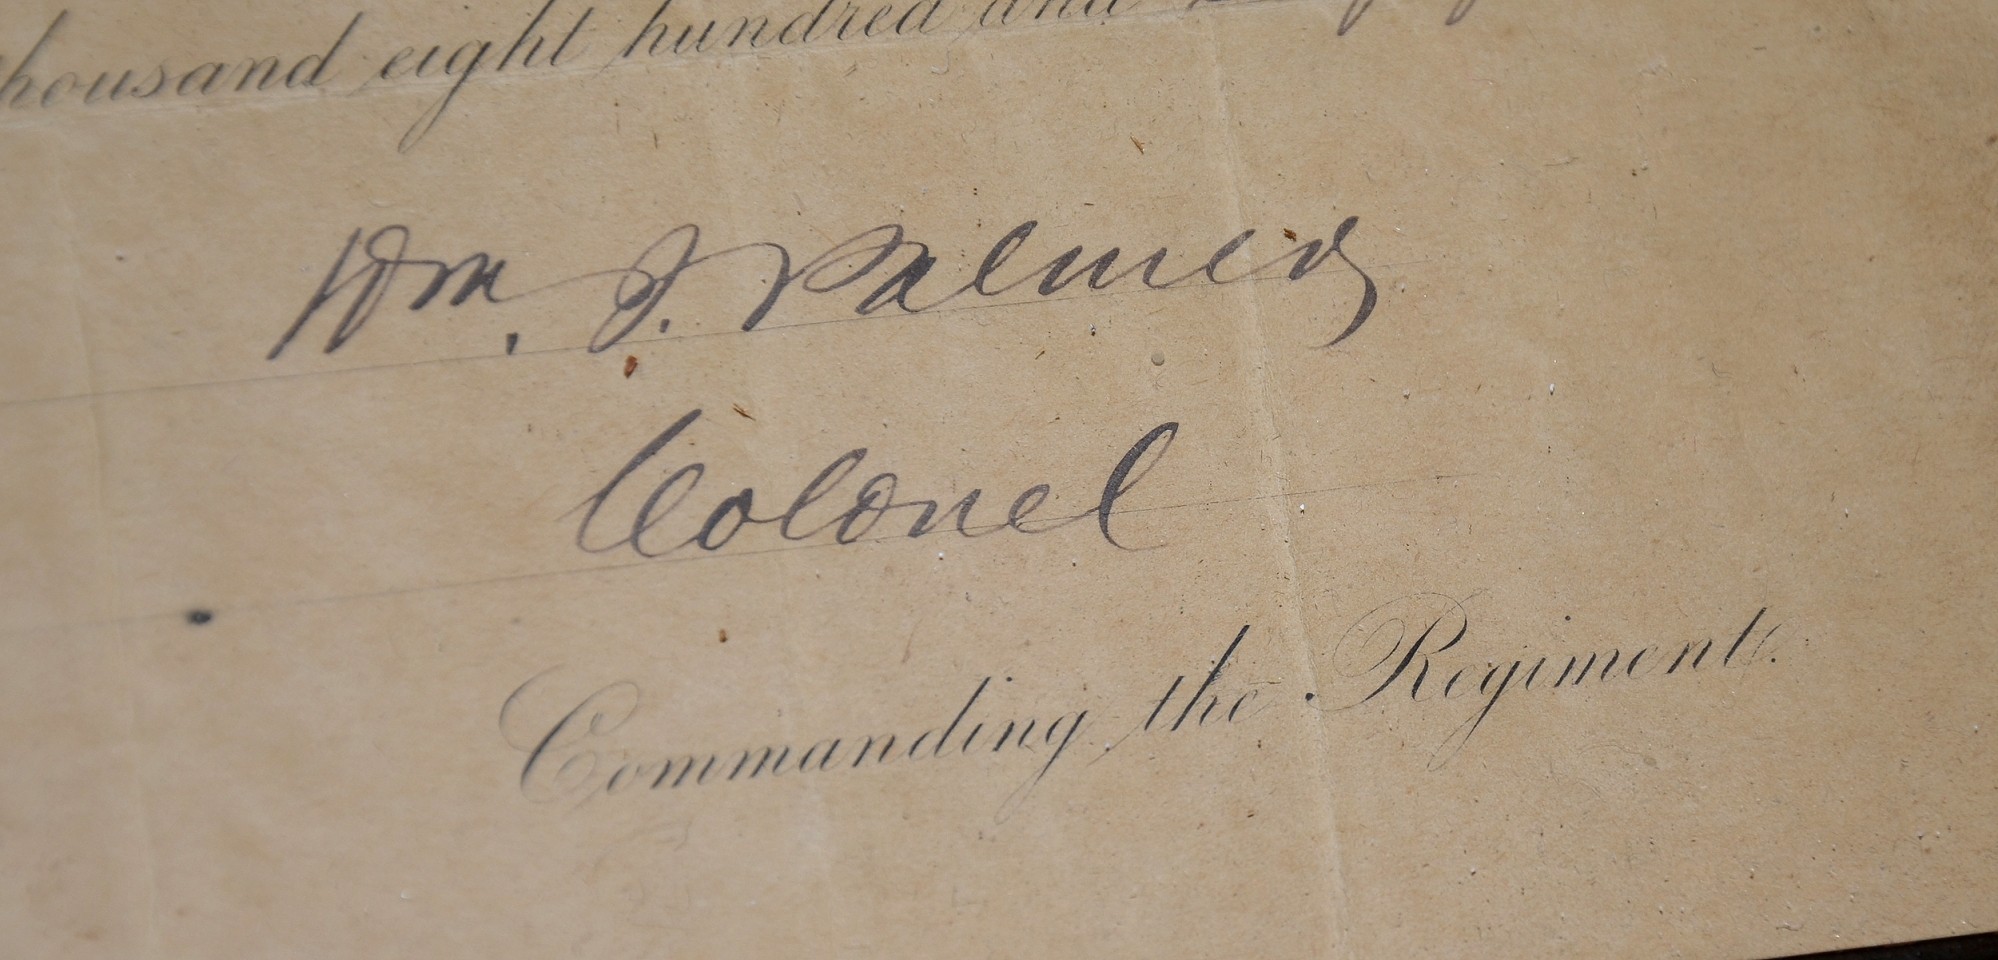 thousand eight hundred and
Wm. J. Palmer
Colonel
Commanding the Regiment.